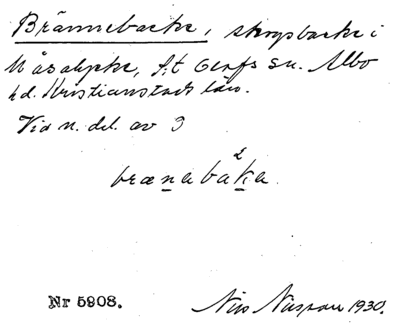 Brännebacke, skogsbacke i
Måsalycke, S:t Olofs sn. Albo
hd. Kristianstads län.
Vid n. del. av 3
brænabaka.
Nr 5908.
1930.